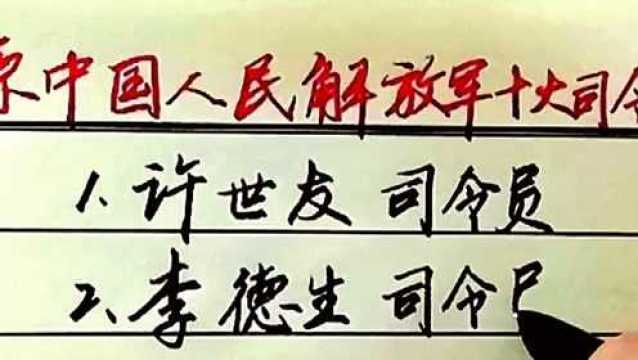 原中国人民解放军十大司令
1.许世友 司令员
2.李德生 司令